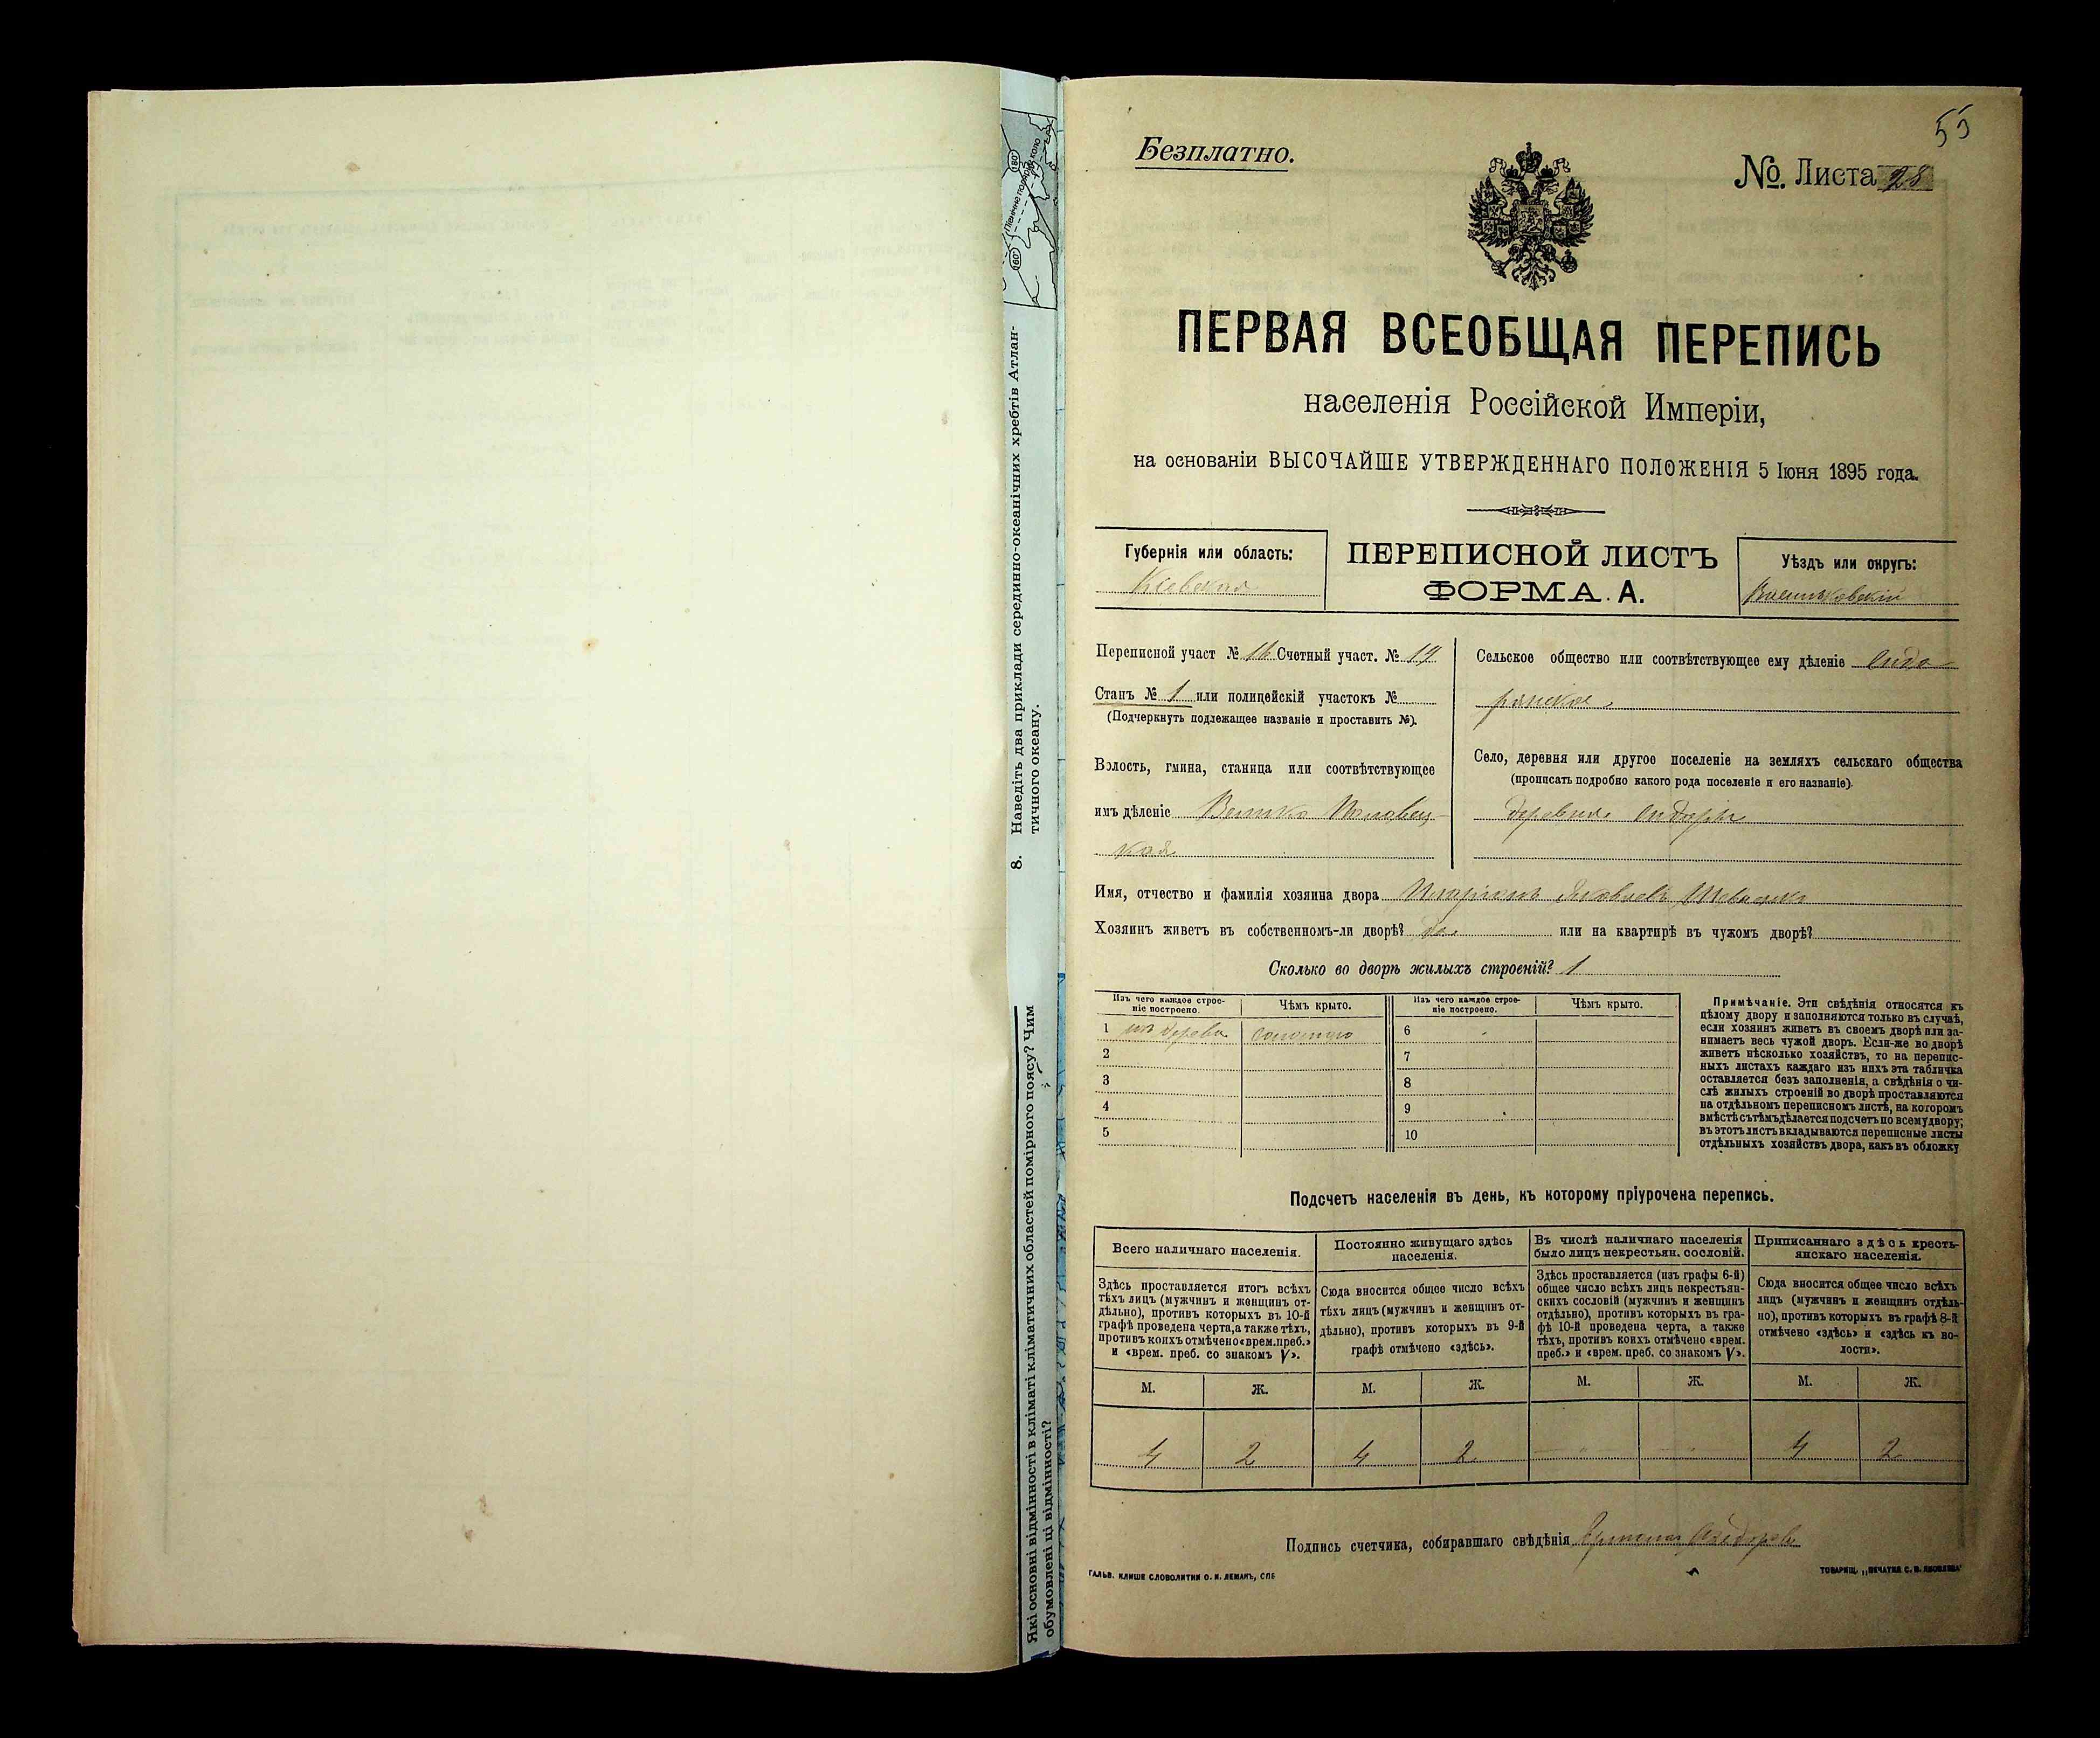 60°
180°
Північне полярне коло
8. Наведіть два приклади серединно-океанічних хребтів Атлан-
тичного океану.
Які основні відмінності в кліматі кліматичних областей помірного поясу? Чим
обумовлені ці відмінності?
55
Безплатно.
№. Листа 28
ПЕРВАЯ ВСЕОБЩАЯ ПЕРЕПИСЬ
населенія Россійской Имперіи,
на основаніи ВЫСОЧАЙШЕ УТВЕРЖДЕННАГО ПОЛОЖЕНІЯ 5 Іюня 1895 года.
Губернія или область:
Кіевская
ПЕРЕПИСНОЙ ЛИСТЪ
ФОРМА. А.
Уѣздъ или округъ:
Васильковскій
Переписной участ № 16 Счетный участ. № 19
Станъ № 1 или полицейскій участокъ №
(Подчеркнуть подлежащее названіе и проставить №).
Волость, гмина, станица или соотвѣтствующее
имъ дѣленіе Велико Половец-
кая
Сельское общество или соотвѣтствующее ему дѣленіе Сидо-
рянское
Село, деревня или другое поселеніе на земляхъ сельскаго общества
(прописать подробно какого рода поселеніе и его названіе).
деревня Сидоры
Имя, отчество и фамилія хозяина двора Иларіонъ Яковлевъ
Хозяинъ живетъ въ собственномъ-ли дворѣ? да или на квартирѣ въ чужомъ дворѣ?
Сколько во дворѣ жилыхъ строеній? 1
Изъ чего каждое строе-
ніе построено.
Чѣмъ крыто.
Изъ чего каждое строе-
ніе построено.
Чѣмъ крыто.
1 изъ дерева соломою 6
2 7
3 8
4 9
5 10
Примѣчаніе. Эти свѣдѣнія относятся къ
цѣлому двору и заполняются только въ случаѣ,
если хозяинъ живетъ въ своемъ дворѣ или за-
нимаетъ весь чужой дворъ. Если-же во дворѣ
живетъ нѣсколько хозяйствъ, то на перепис-
ныхъ листахъ каждаго изъ нихъ эта табличка
оставляется безъ заполненія, а свѣдѣнія о чи-
слѣ жилыхъ строеній во дворѣ проставляются
на отдѣльномъ переписномъ листѣ, на которомъ
вмѣстѣ съ тѣмъ дѣлается подсчетъ по всему двору;
въ этотъ листъ вкладываются переписные листы
отдѣльныхъ хозяйствъ двора, какъ въ обложку
Подсчетъ населенія въ день, къ которому пріурочена перепись.
Всего наличнаго населенія.
Здѣсь проставляется итогъ всѣхъ
тѣхъ лицъ (мужчинъ и женщинъ от-
дѣльно), противъ которыхъ въ 10-й
графѣ проведена черта, а также тѣхъ,
противъ коихъ отмѣчено «врем. преб.»
и «врем. преб. со знакомъ V».
Постоянно живущаго здѣсь
населенія.
Сюда вносится общее число всѣхъ
тѣхъ лицъ (мужчинъ и женщинъ от-
дѣльно), противъ которыхъ въ 9-й
графѣ отмѣчено «здѣсь».
Въ числѣ наличнаго населенія
было лицъ некрестьян. сословій.
Здѣсь проставляется (изъ графы 6-й)
общее число всѣхъ лицъ некрестьян-
скихъ сословій (мужчинъ и женщинъ
отдѣльно), противъ которыхъ въ гра-
фѣ 10-й проведена черта, а также
тѣхъ, противъ коихъ отмѣчено «врем.
преб.» и «врем. преб. со знакомъ V».
Приписаннаго здѣсь кресть-
янскаго населенія.
Сюда вносится общее число всѣхъ
лицъ (мужчинъ и женщинъ отдѣль-
но), противъ которыхъ въ графѣ 8-й
отмѣчено «здѣсь» и «здѣсь къ во-
лости».
М. Ж. М. Ж. М. Ж. М. Ж.
4 2 4 2 - " - - " - 4 2
Подпись счетчика, собиравшаго свѣдѣнія
ГАЛЬВ. КЛИШЕ СЛОВОЛИТНИ О. И. ЛЕМАНЪ, СПБ
ТОВАРИЩ. „ПЕЧАТНЯ С. П. ЯКОВЛЕВА"